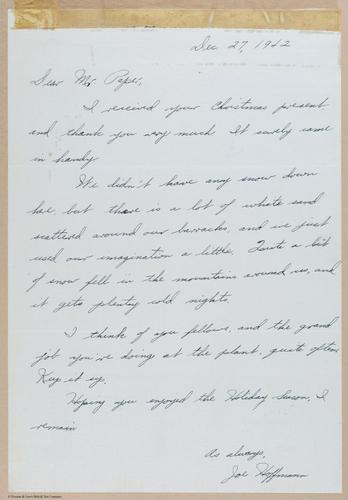 Dec 27, 1942
Dear Mr. Peper,
I received your Christmas present
and thank you very much It surely came
in handy
We didn't have any snow down
here, but there is a lot of white sand
scattered around our barracks, and we just
used our imagination a little. Quite a bit
of snow fell in the mountains around us, and
it gets plenty cold nights.
I think of you fellows, and the grand
job you're doing at the plant, quite often
Keep it up.
Hoping you enjoyed the Holiday Season, I
remain
As always,
Joe Hoffmann